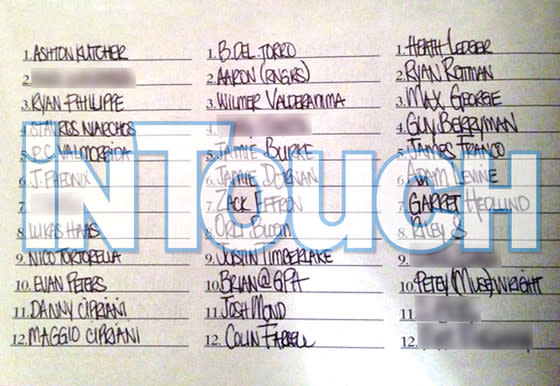 1. ASHTON KUTCHER
2.
3. RYAN PHILIPPE
4. STAVROS NIARCHOS
5. P.C. VALMORBIDA
6. J. PHEONIX
7.
8. LUKAS HAAS
9. NICO TORTORELLA
10. EVAN PETERS
11. DANNY CIPRIANI
12. MAGGIO CIPRIANI
1. B. DEL TORRO
2. AARON (RNGRS)
3. WILMER VALDERAMA
4.
5. JAMIE BURKE
6. JAMIE DORNAN
7. ZACK EFFRON
8. ORLI BLOOM
9. JUSTIN TIMBERLAKE
10. BRIAN@GPA
11. JOSH MOND
12. COLIN FARRELL
1. HEATH LEDGER
2. RYAN ROTTMAN
3. MAX GEORGE
4. GUY BERRYMAN
5. JAMES FRANCO
6. ADAM LEVINE
7. GARRET HEDLUND
8. RILEY S
9.
10. PETEY (MUSE) WRIGHT
11.
12.
INTOUCH